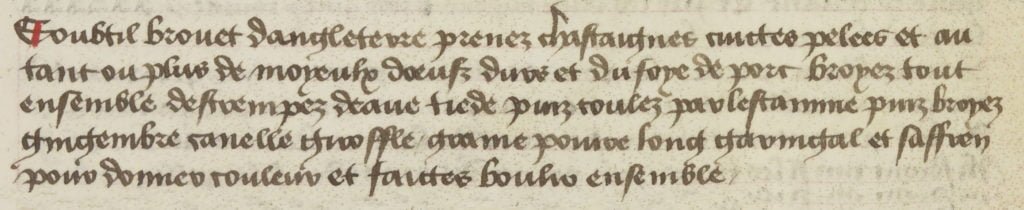 Soubtil brouet dangleterre prenez chastaignes cuictes pelees et au
tant ou plus de moyeulx doeufz durs et du foye de porc broyez tout
ensemble destrempez deaue tiede puiz coulez par lestamine puiz broyez
gingembre canelle giroffle graine poivre long garingal et saffren
pour donner couleur et faictes boulir ensemble